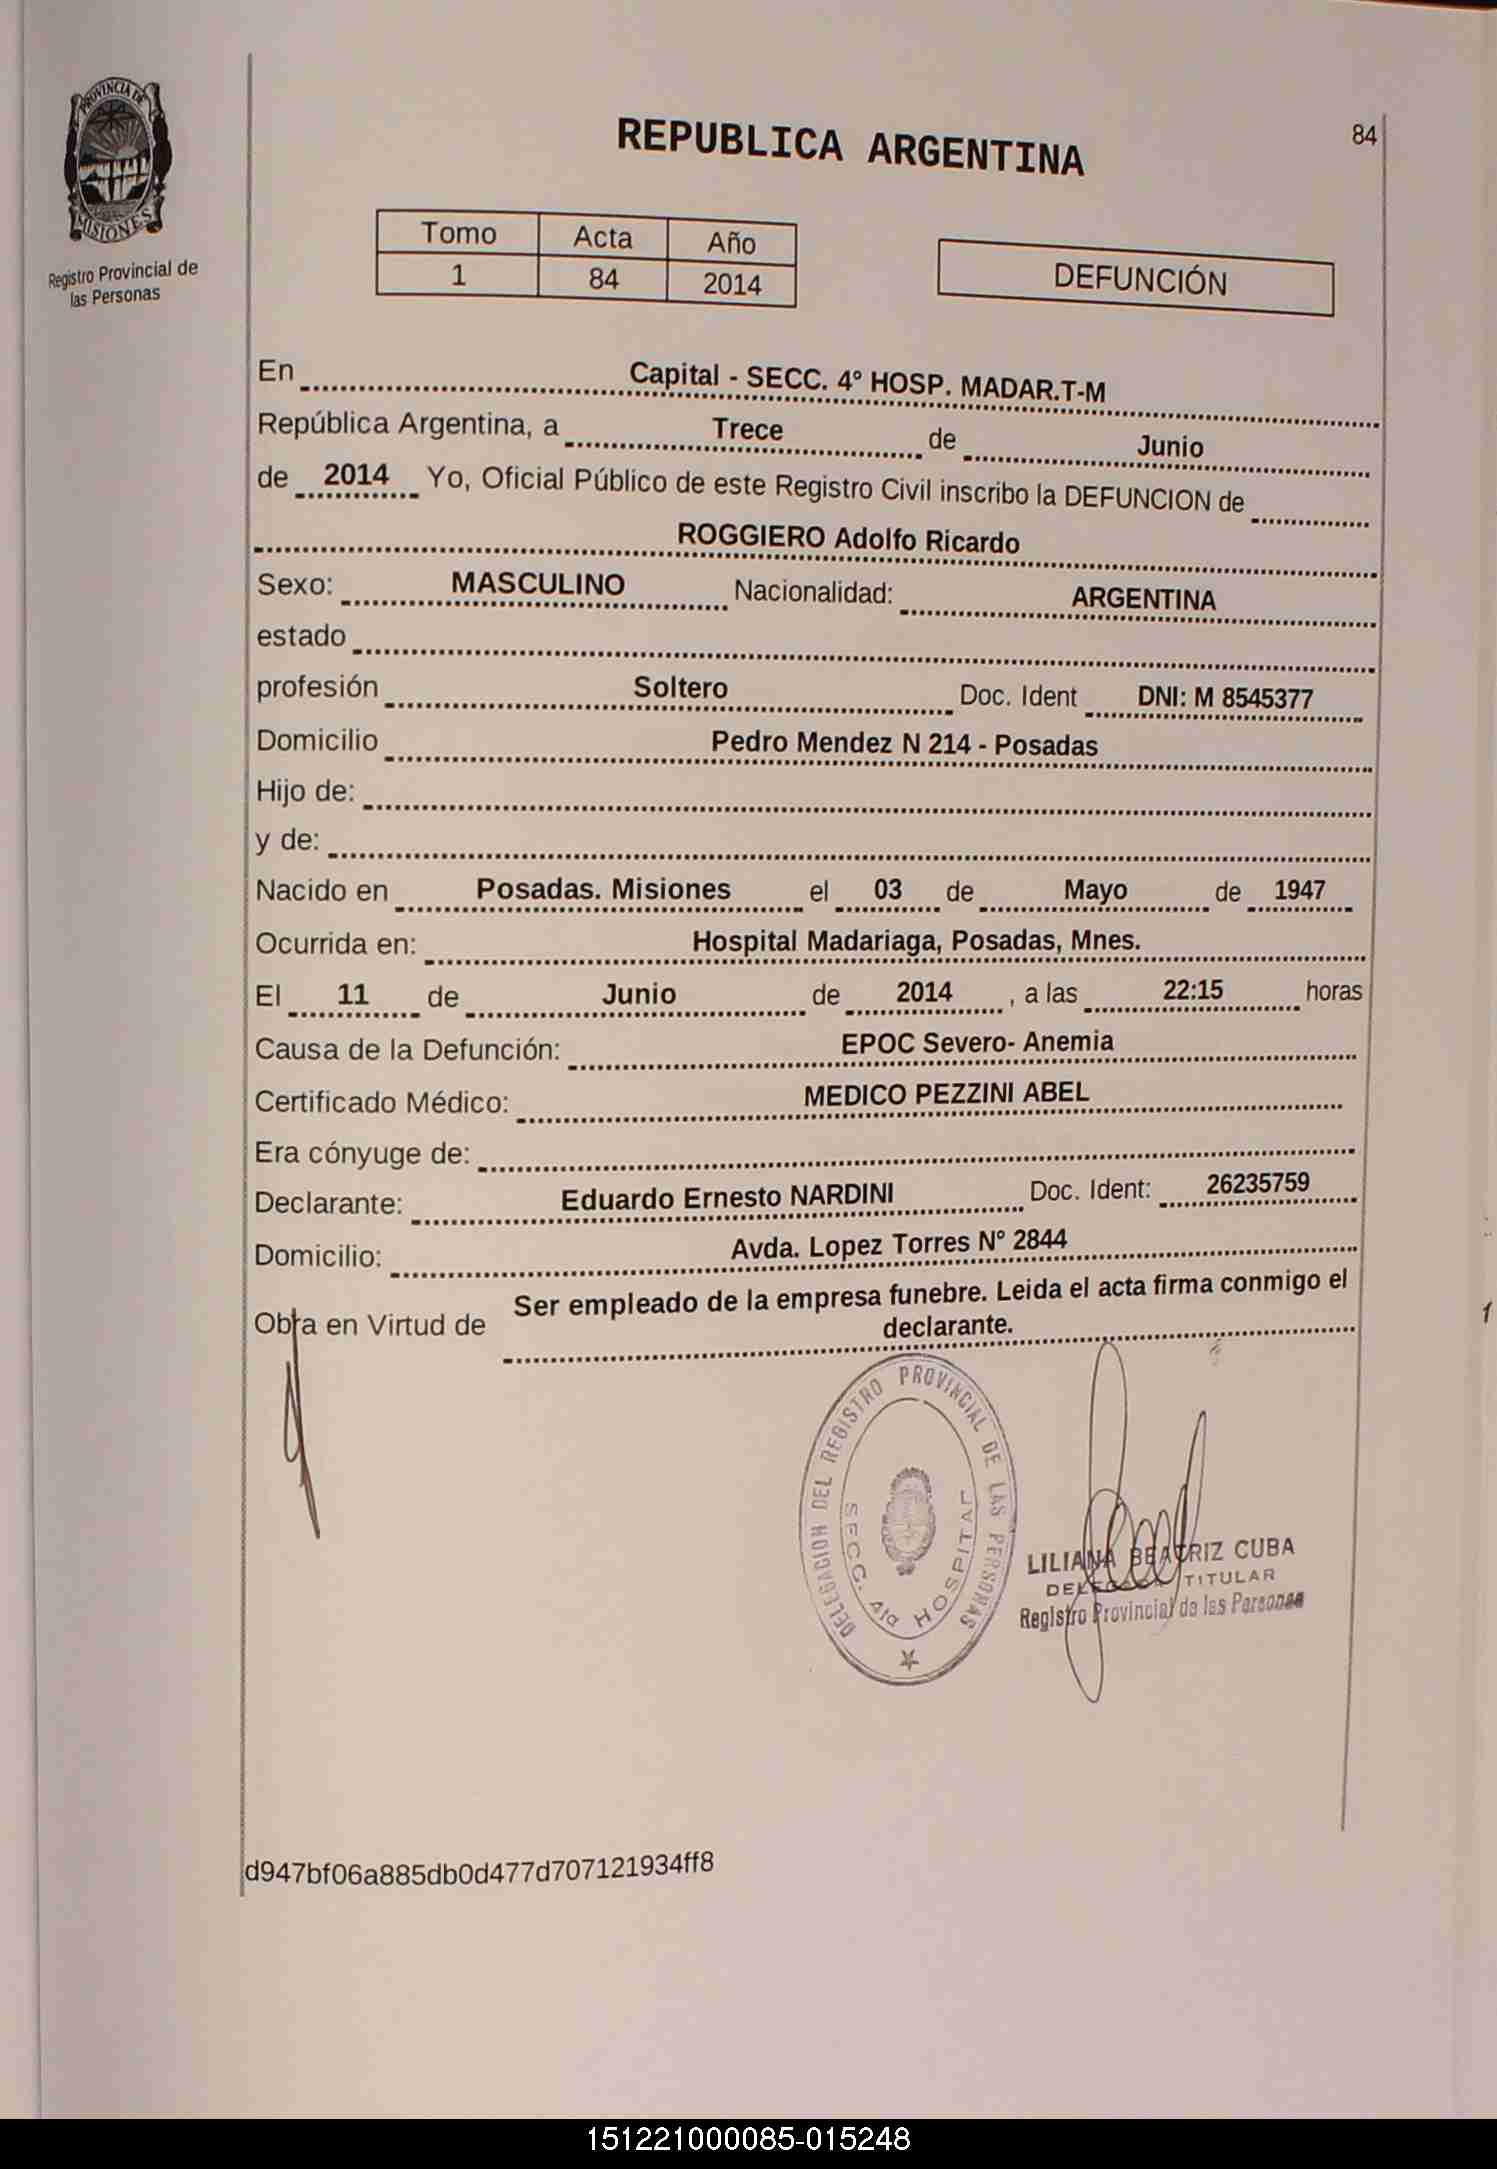 PROVINCIA DE
MISIONES
Registro Provincial de
las Personas
84
REPUBLICA ARGENTINA
Tomo Acta Año
1 84 2014
DEFUNCIÓN
En Capital - SECC. 4° HOSP. MADAR.T-M
República Argentina, a Trece de Junio
de 2014 Yo, Oficial Público de este Registro Civil inscribo la DEFUNCION de
ROGGIERO Adolfo Ricardo
Sexo: MASCULINO Nacionalidad: ARGENTINA
estado
profesión Soltero Doc. Ident DNI: M 8545377
Domicilio Pedro Mendez N 214 - Posadas
Hijo de:
y de:
Nacido en Posadas. Misiones el 03 de Mayo de 1947
Ocurrida en: Hospital Madariaga, Posadas, Mnes.
El 11 de Junio de 2014 , a las 22:15 horas
Causa de la Defunción: EPOC Severo- Anemia
Certificado Médico: MEDICO PEZZINI ABEL
Era cónyuge de:
Declarante: Eduardo Ernesto NARDINI Doc. Ident: 26235759
Domicilio: Avda. Lopez Torres N° 2844
Obra en Virtud de Ser empleado de la empresa funebre. Leida el acta firma conmigo el
declarante.
DELEGACION DEL REGISTRO PROVINCIAL DE LAS PERSONAS
SECC. 4ta HOSPITAL
LILIANA BEATRIZ CUBA
DELEGADA TITULAR
Registro Provincial de las Personas
d947bf06a885db0d477d707121934ff8
151221000085-015248